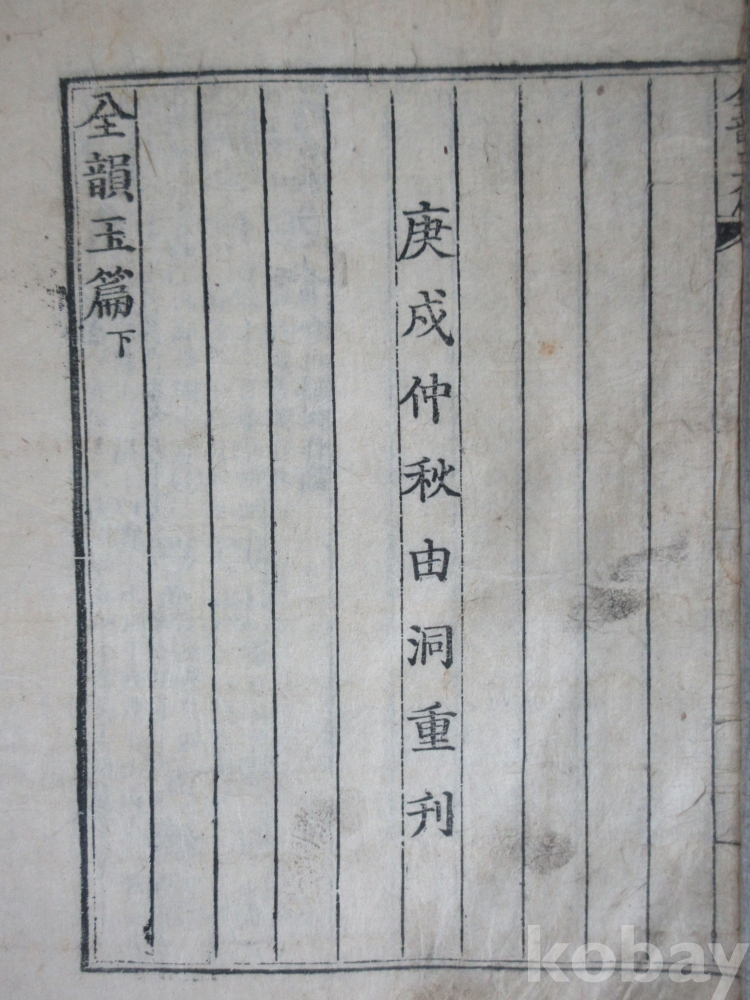 庚戌仲秋由洞重刋
全韻玉篇下
kobay